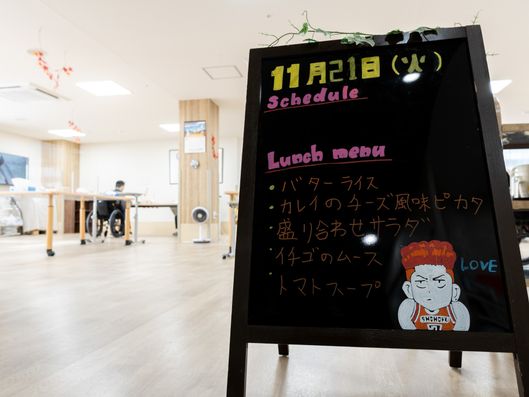 11月21日(火)
Schedule
Lunch menu
・バターライス
・カレイのチーズ風味ピカタ
・盛り合わせサラダ
・イチゴのムース
・トマトスープ
LOVE
SHOHOKU